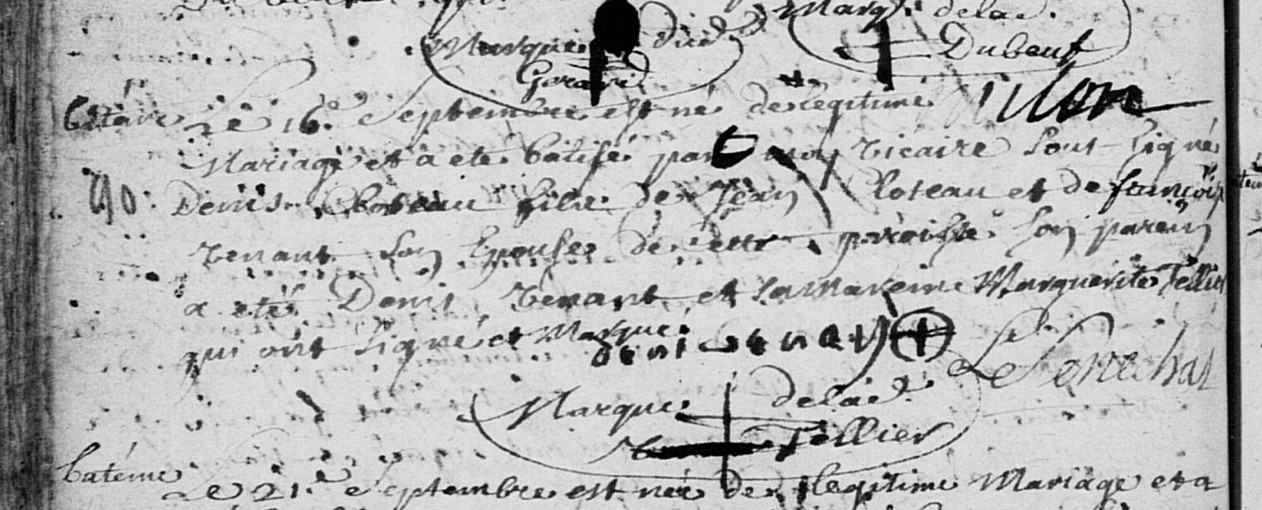 Marque dud Marq. delad.
Gorard Dubaut
Batême Le 16e Septembre est né de legitime
Mariage et a eté batisé par moy vicaire sous signé
Denis Loteau fils de Jean Loteau et de francois
tenant son Epouse de cette paroisse son parein
a eté Denis tenant et sa mareine Marguerite Tellier
qui ont signé et Marqué. denis tenant Le Senechal
Marque delad
Tellier
batéme
Le 21e Septembre est née de legitime Mariage et a